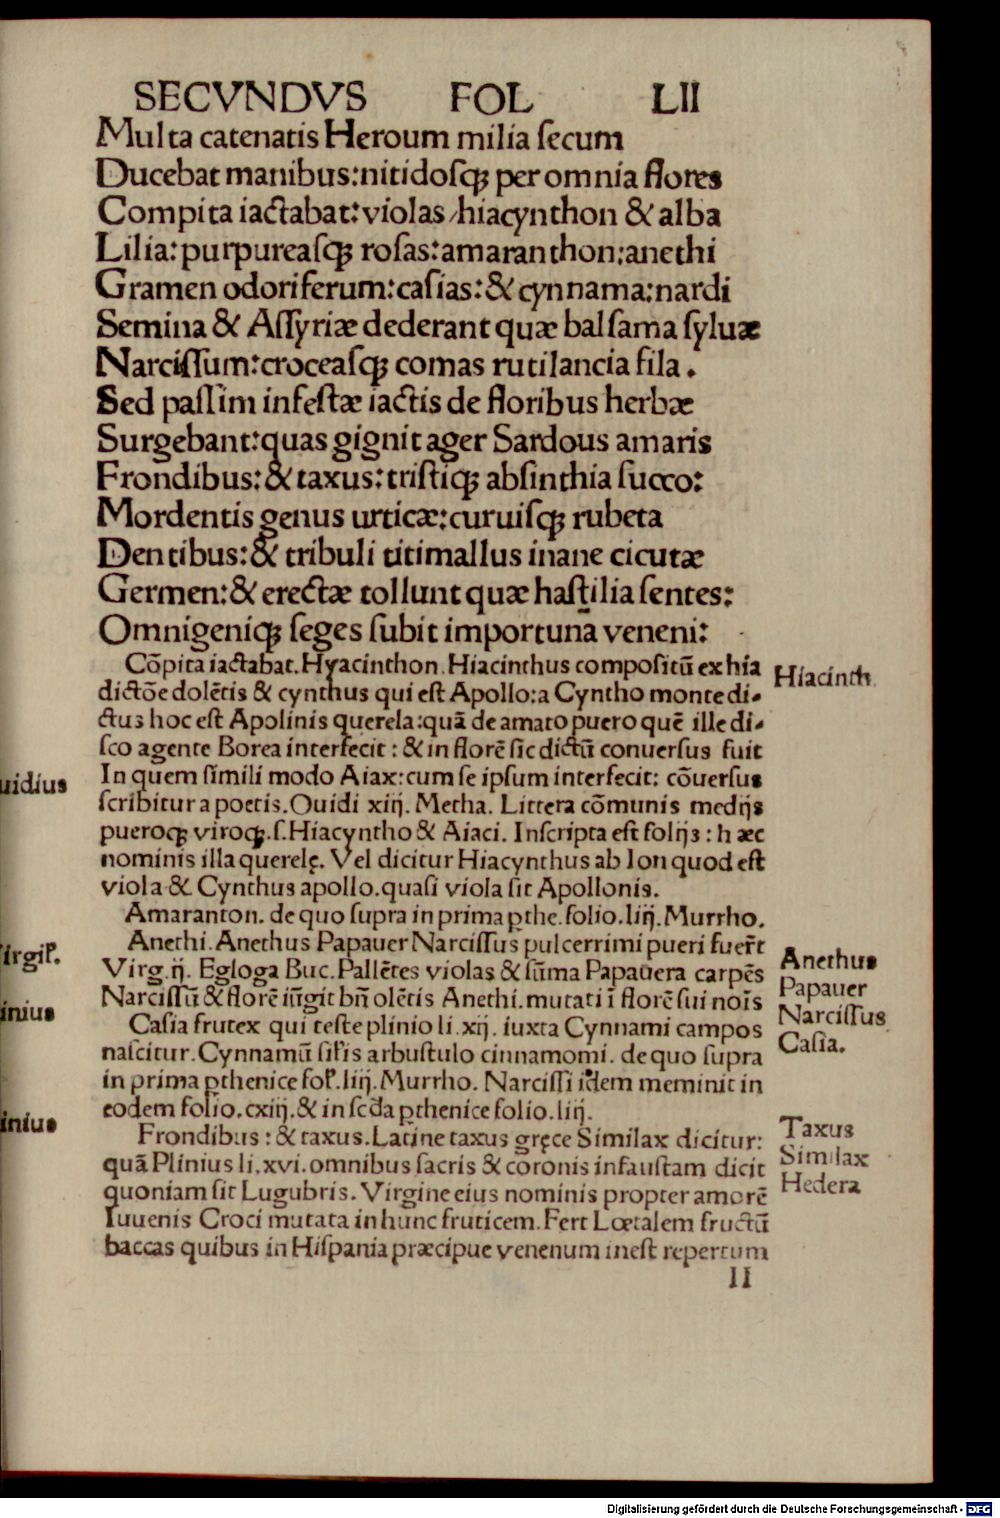 SECVNDVS FOL LII
Multa catenatis Heroum milia ſecum
Ducebat manibus:nitidoſqꝫ per omnia flores
Compita iactabat:violas/hiacynthon & alba
Lilia:purpureaſqꝫ roſas:amaranthon:anethi
Gramen odoriferum:caſias:& cynnama:nardi
Semina & Aſſyriæ dederant quæ balſama ſyluæ
Narciſſum:croceaſqꝫ comas rutilancia fila.
Sed paſſim infeſtæ iactis de floribus herbæ
Surgebant:quas gignit ager Sardous amaris
Frondibus:& taxus:triſtiqꝫ abſinthia ſucco:
Mordentis genus urticæ:curuiſqꝫ rubeta
Dentibus:& tribuli titimallus inane cicutæ
Germen:& erectæ tollunt quæ haſtilia ſentes:
Omnigeniqꝫ ſeges ſubit importuna veneni:
Cōpita iactabat.Hyacinthon.Hiacinthus compoſitū ex hia
dictōe dolētis & cynthus qui eſt Apollo:a Cyntho monte di-
ctuꝫ hoc eſt Apolinis querela:quā de amato puero quē ille di-
ſco agente Borea interfecit : & in florē ſic dictū conuerſus fuit
In quem ſimili modo Aiax:cum ſe ipſum interfecit: cōuerſus
ſcribitur a poetis.Ouidi xiij. Metha. Littera cōmunis medijs
pueroqꝫ viroqꝫ.ſ.Hiacyntho & Aiaci. Inſcripta eſt folijs : hæc
nominis illa querelę. Vel dicitur Hiacynthus ab Ion quod eſt
viola & Cynthus apollo.quaſi viola ſit Apollonis.
Amaranton. de quo ſupra in prima ꝑthe.folio.liij.Murrho.
Anethi.Anethus Papauer Narciſſus pulcerrimi pueri fuer̄t
Virg.ij. Egloga Buc.Pallētes violas & ſūma Papauera carpēs
Narciſſū & florē iūgit bn̄ olētis Anethi.mutati ī florē ſui noīs
Caſia frutex qui teſte plinio li.xij. iuxta Cynnami campos
naſcitur.Cynnamū ſil̄is arbuſtulo cinnamomi. de quo ſupra
in prima ꝑthenice fol̄.liij.Murrho. Narciſſi idem meminit in
eodem folio.cxiij.& in ſcd̄a ꝑthenice folio.liij.
Frondibus : & taxus.Latine taxus gręce Similax dicitur:
quā Plinius li.xvi.omnibus ſacris & coronis infauſtam dicit
quoniam ſit Lugubris.Virgine eius nominis propter amorē
Iuuenis Croci mutata in hunc fruticem.Fert Lœtalem fructū
baccas quibus in Hiſpania præcipue venenum ineſt repertum
II
Hiacinth
Anethus
Papauer
Narciſſus
Caſia.
Taxus
Similax
Hedera
uidius
irgil̄.
inius
inius
Digitalisierung gefördert durch die Deutsche Forschungsgemeinschaft - DFG